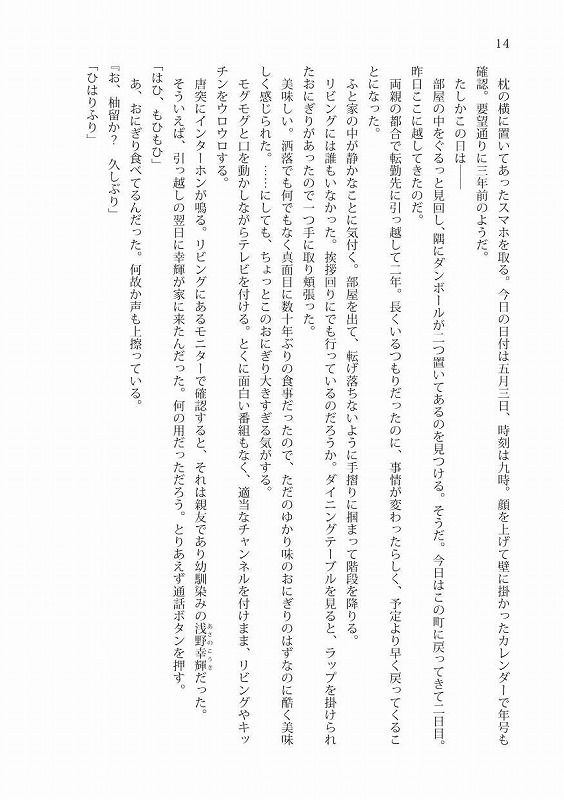 14
枕の横に置いてあったスマホを取る。今日の日付は五月三日、時刻は九時。顔を上げて壁に掛かったカレンダーで年号も
確認。要望通りに三年前のようだ。
たしかこの日は――
部屋の中をぐるっと見回し、隅にダンボールが二つ置いてあるのを見つける。そうだ。今日はこの町に戻ってきて二日目。
昨日ここに越してきたのだ。
両親の都合で転勤先に引っ越して二年。長くいるつもりだったのに、事情が変わったらしく、予定より早く戻ってくるこ
とになった。
ふと家の中が静かなことに気付く。部屋を出て、転げ落ちないように手摺りに掴まって階段を降りる。
リビングには誰もいなかった。挨拶回りにでも行っているのだろうか。ダイニングテーブルを見ると、ラップを掛けられ
たおにぎりがあったので一つ手に取り頬張った。
美味しい。洒落でも何でもなく真面目に数十年ぶりの食事だったので、ただのゆかり味のおにぎりのはずなのに酷く美味
しく感じられた。……にしても、ちょっとこのおにぎり大きすぎる気がする。
モグモグと口を動かしながらテレビを付ける。とくに面白い番組もなく、適当なチャンネルを付けまま、リビングやキッ
チンをウロウロする。
唐突にインターホンが鳴る。リビングにあるモニターで確認すると、それは親友であり幼馴染みの浅野幸輝だった。
あさのこうき
そういえば、引っ越しの翌日に幸輝が家に来たんだった。何の用だっただろう。とりあえず通話ボタンを押す。
「はひ、もひもひ」
あ、おにぎり食べてるんだった。何故か声も上擦っている。
『お、柚留か？　久しぶり』
「ひはりふり」